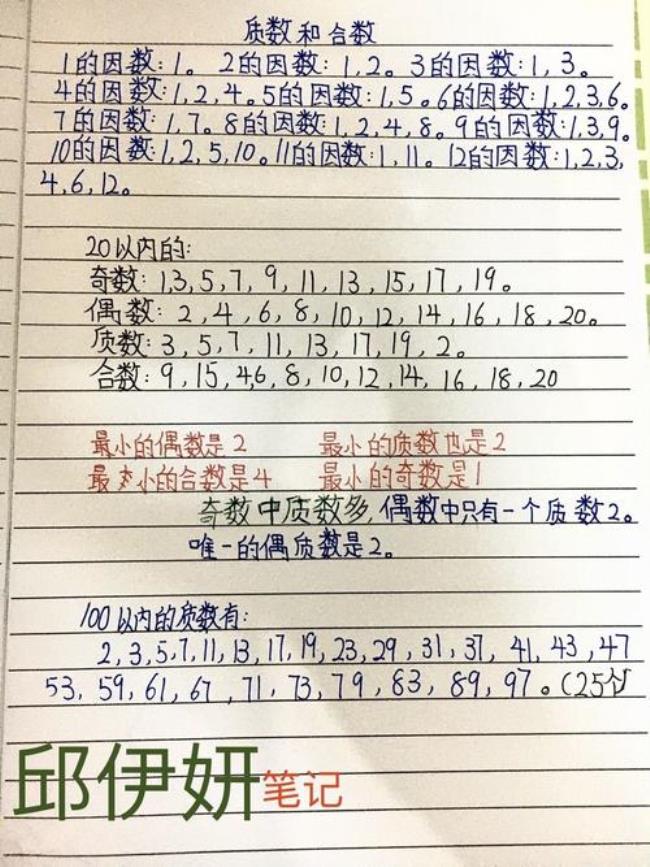 质数和合数
1的因数:1。 2的因数:1,2。3的因数:1,3。
4的因数:1,2,4。5的因数:1,5。6的因数:1,2,3,6。
7的因数:1,7。8的因数:1,2,4,8。9的因数:1,3,9。
10的因数:1,2,5,10。11的因数:1,11。12的因数:1,2,3,
4,6,12。
20以内的:
奇数:1,3,5,7,9,11,13,15,17,19。
偶数:2,4,6,8,10,12,14,16,18,20。
质数:3,5,7,11,13,17,19,2。
合数:9,15,4,6,8,10,12,14,16,18,20
最小的偶数是2 最小的质数也是2
最小的合数是4 最小的奇数是1
奇数中质数多,偶数中只有一个质数2。
唯一的偶质数是2。
100以内的质数有:
2,3,5,7,11,13,17,19,23,29,31,37,41,43,47
53,59,61,67,71,73,79,83,89,97。(25个)
邱伊妍笔记